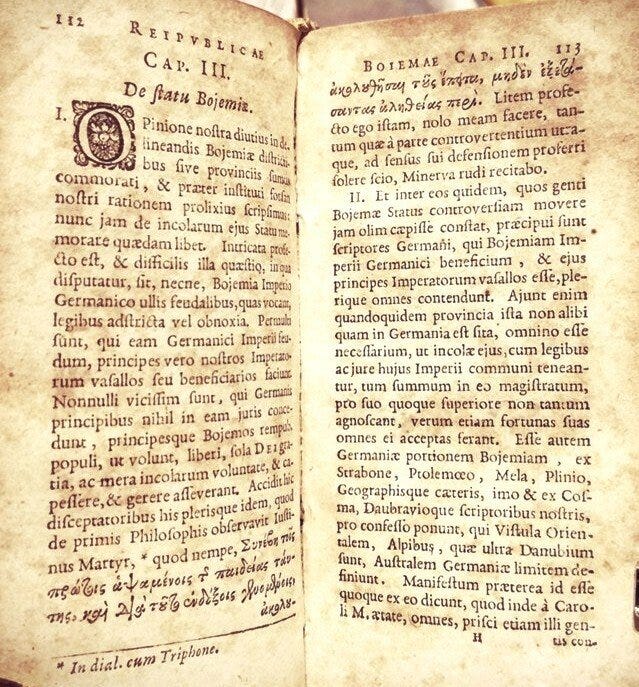 112 REIPVBLICAE
CAP. III.
De ſtatu Bojemiæ.
I. OPinione noſtra diutius in de-
lineandis Bojemiæ diſtricti-
bus ſive provinciis ſumus
commorati, & præter inſtituti forſan
noſtri rationem prolixius ſcripſimus:
nunc jam de incolarum ejus Statu me-
morare quædam libet. Intricata profe-
cto eſt, & difficilis illa quæſtio, in qua
diſputatur, ſit, necne, Bojemia Imperio
Germanico ullis feudalibus, quas vocant,
legibus adſtricta vel obnoxia. Permulti
ſunt, qui eam Germanici Imperii feu-
dum, principes vero noſtros Imperato-
rum vaſallos ſeu beneficiarios faciunt.
Nonnulli viciſſim ſunt, qui Germanis
principibus nihil in eam juris conce-
dunt, principesque Bojemos rempub.
populi, ut volunt, liberi, ſola DEI gra-
tia, ac mera incolarum voluntate, & ca-
peſſere, & gerere aſſeverant. Accidit hic
diſceptatoribus his plerisque idem, quod
de primis Philoſophis obſervavit Iuſti-
nus Martyr, * quod nempe, Συνέβη τῆς
πρώτοις ἁψαμένοις τ παιδείας ταύ-
της, καὶ Διὰ τοῦτο ἐνδόξοις
ἀκολυ-
* In dial. cum Triphone.
BOIEMAE CAP. III. 113
ἀκολυθῆσαι τοῖς ἔπειτα, μηδὲν ἐξετά-
σαντας ἀληθείας περί. Litem profe-
cto ego iſtam, nolo meam facere, tan-
tum quæ à parte controvertentium utra-
que, ad ſensus ſui defenſionem proferri
ſolere ſcio, Minerva rudi recitabo.
II. Et inter eos quidem, quos genti
Bojemæ Status controverſiam movere
jam olim cæpiſſe conſtat, præcipui ſunt
ſcriptores Germani, qui Bojemiam Im-
perii Germanici beneficium, & ejus
principes Imperatorum vaſallos eſſe, ple-
rique omnes contendunt. Ajunt enim
quandoquidem provincia iſta non alibi
quam in Germania eſt ſita, omnino eſſe
neceſſarium, ut incolæ ejus, cum legibus
ac jure hujus Imperii communi tenean-
tur, tum ſummum in eo magiſtratum,
pro ſuo quoque ſuperiore non tantum
agnoſcant, verum etiam fortunas ſuas
omnes ei acceptas ferant. Eſſe autem
Germaniæ portionem Bojemiam, ex
Strabone, Ptolemœo, Mela, Plinio,
Geographisque cæteris, imo & ex Coſ-
ma, Daubravioque ſcriptoribus noſtris,
pro confeſſo ponunt, qui Viſtula Orien-
talem, Alpibus, quæ ultra Danubium
ſunt, Auſtralem Germaniæ limitem de-
finiunt. Manifeſtum præterea id eſſe
quoque ex eo dicunt, quod inde à Caro-
li M. ætate, omnes, priſci etiam illi gen-
H tis con-